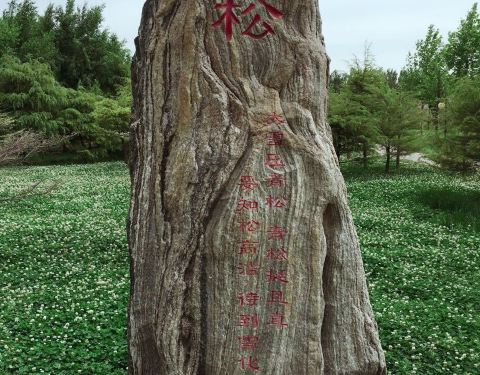 松
大雪压青松 青松挺且直
要知松高洁 待到雪化